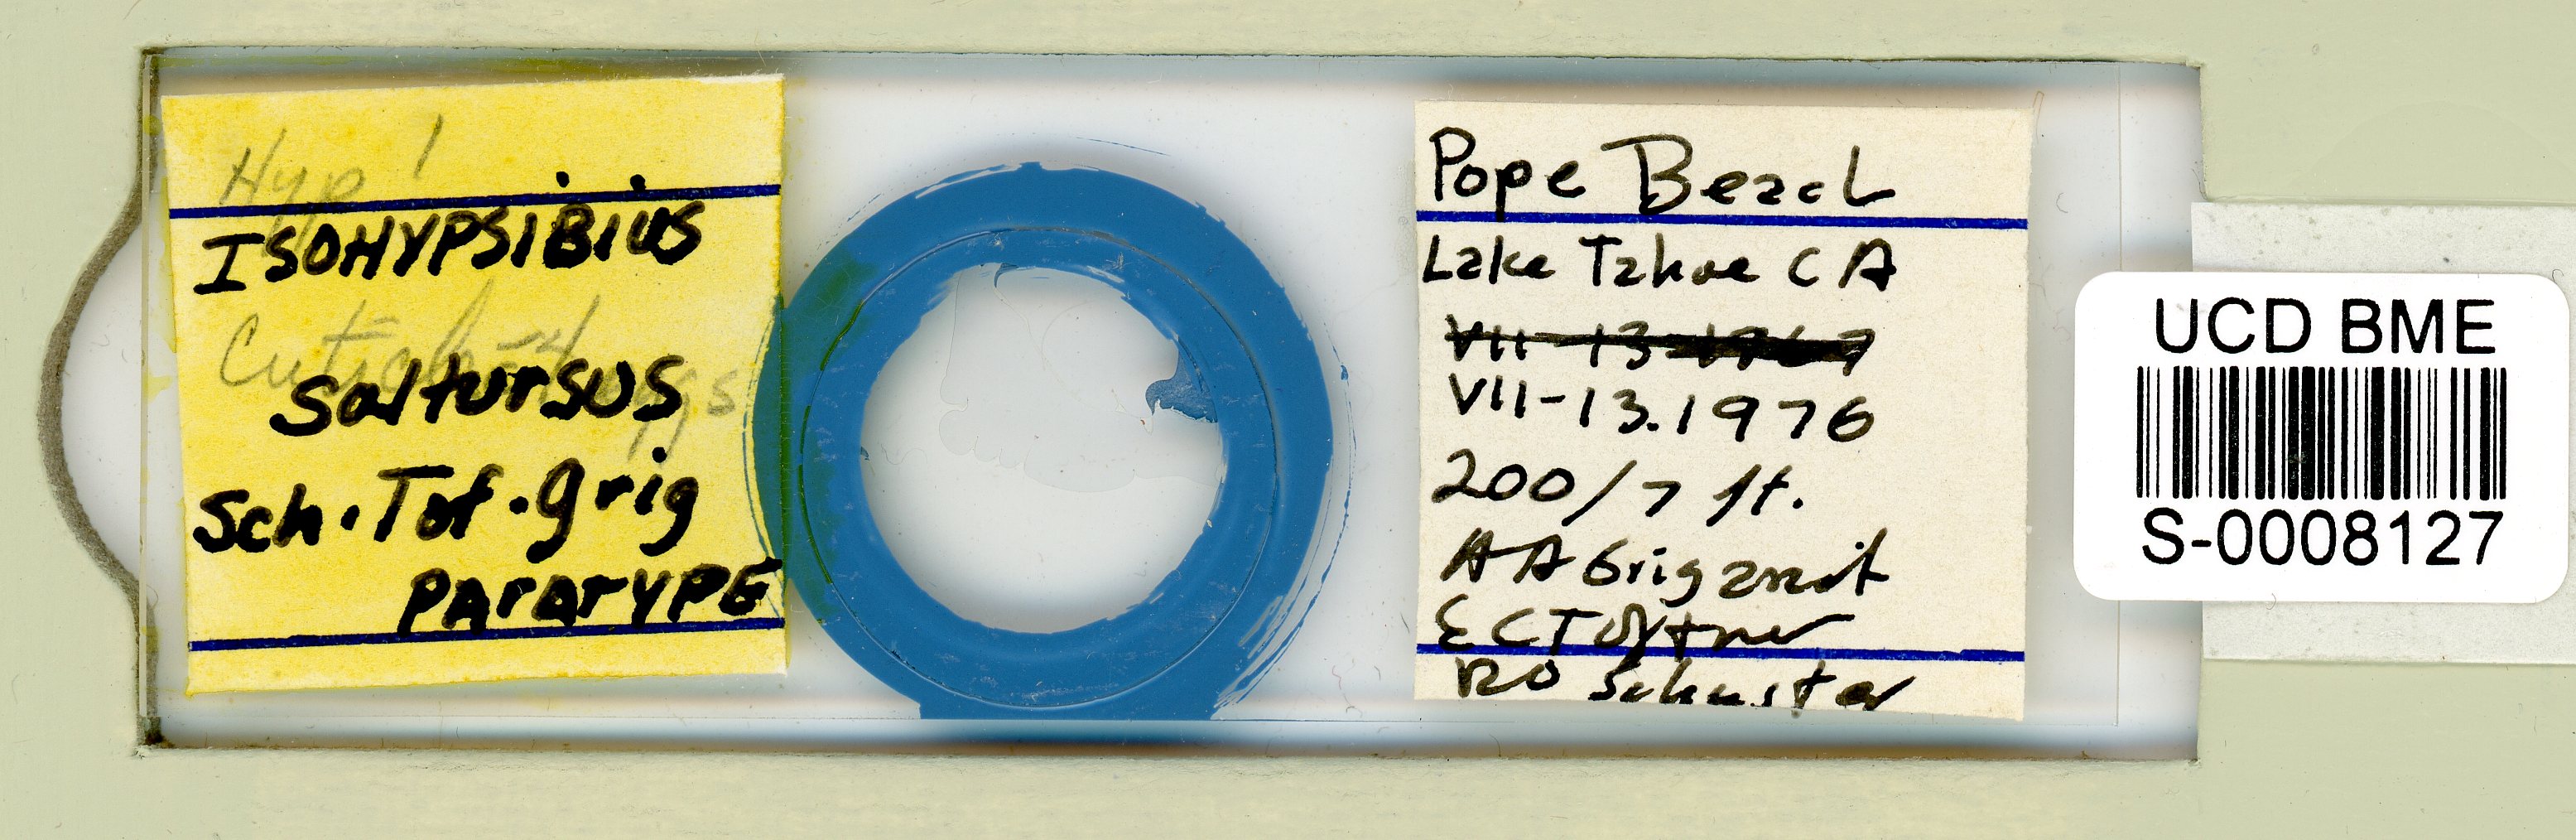 Hyp 1
ISOHYPSIBIUS
Saltursus
Sch. Tof. Grig
PARATYPE
Pope Beach
Lake Tahoe CA
VII-13-1967
VII-13.1976
200/7 ft.
AA Grigarick
EC Toftner
RO Schuster
UCD BME
S-0008127